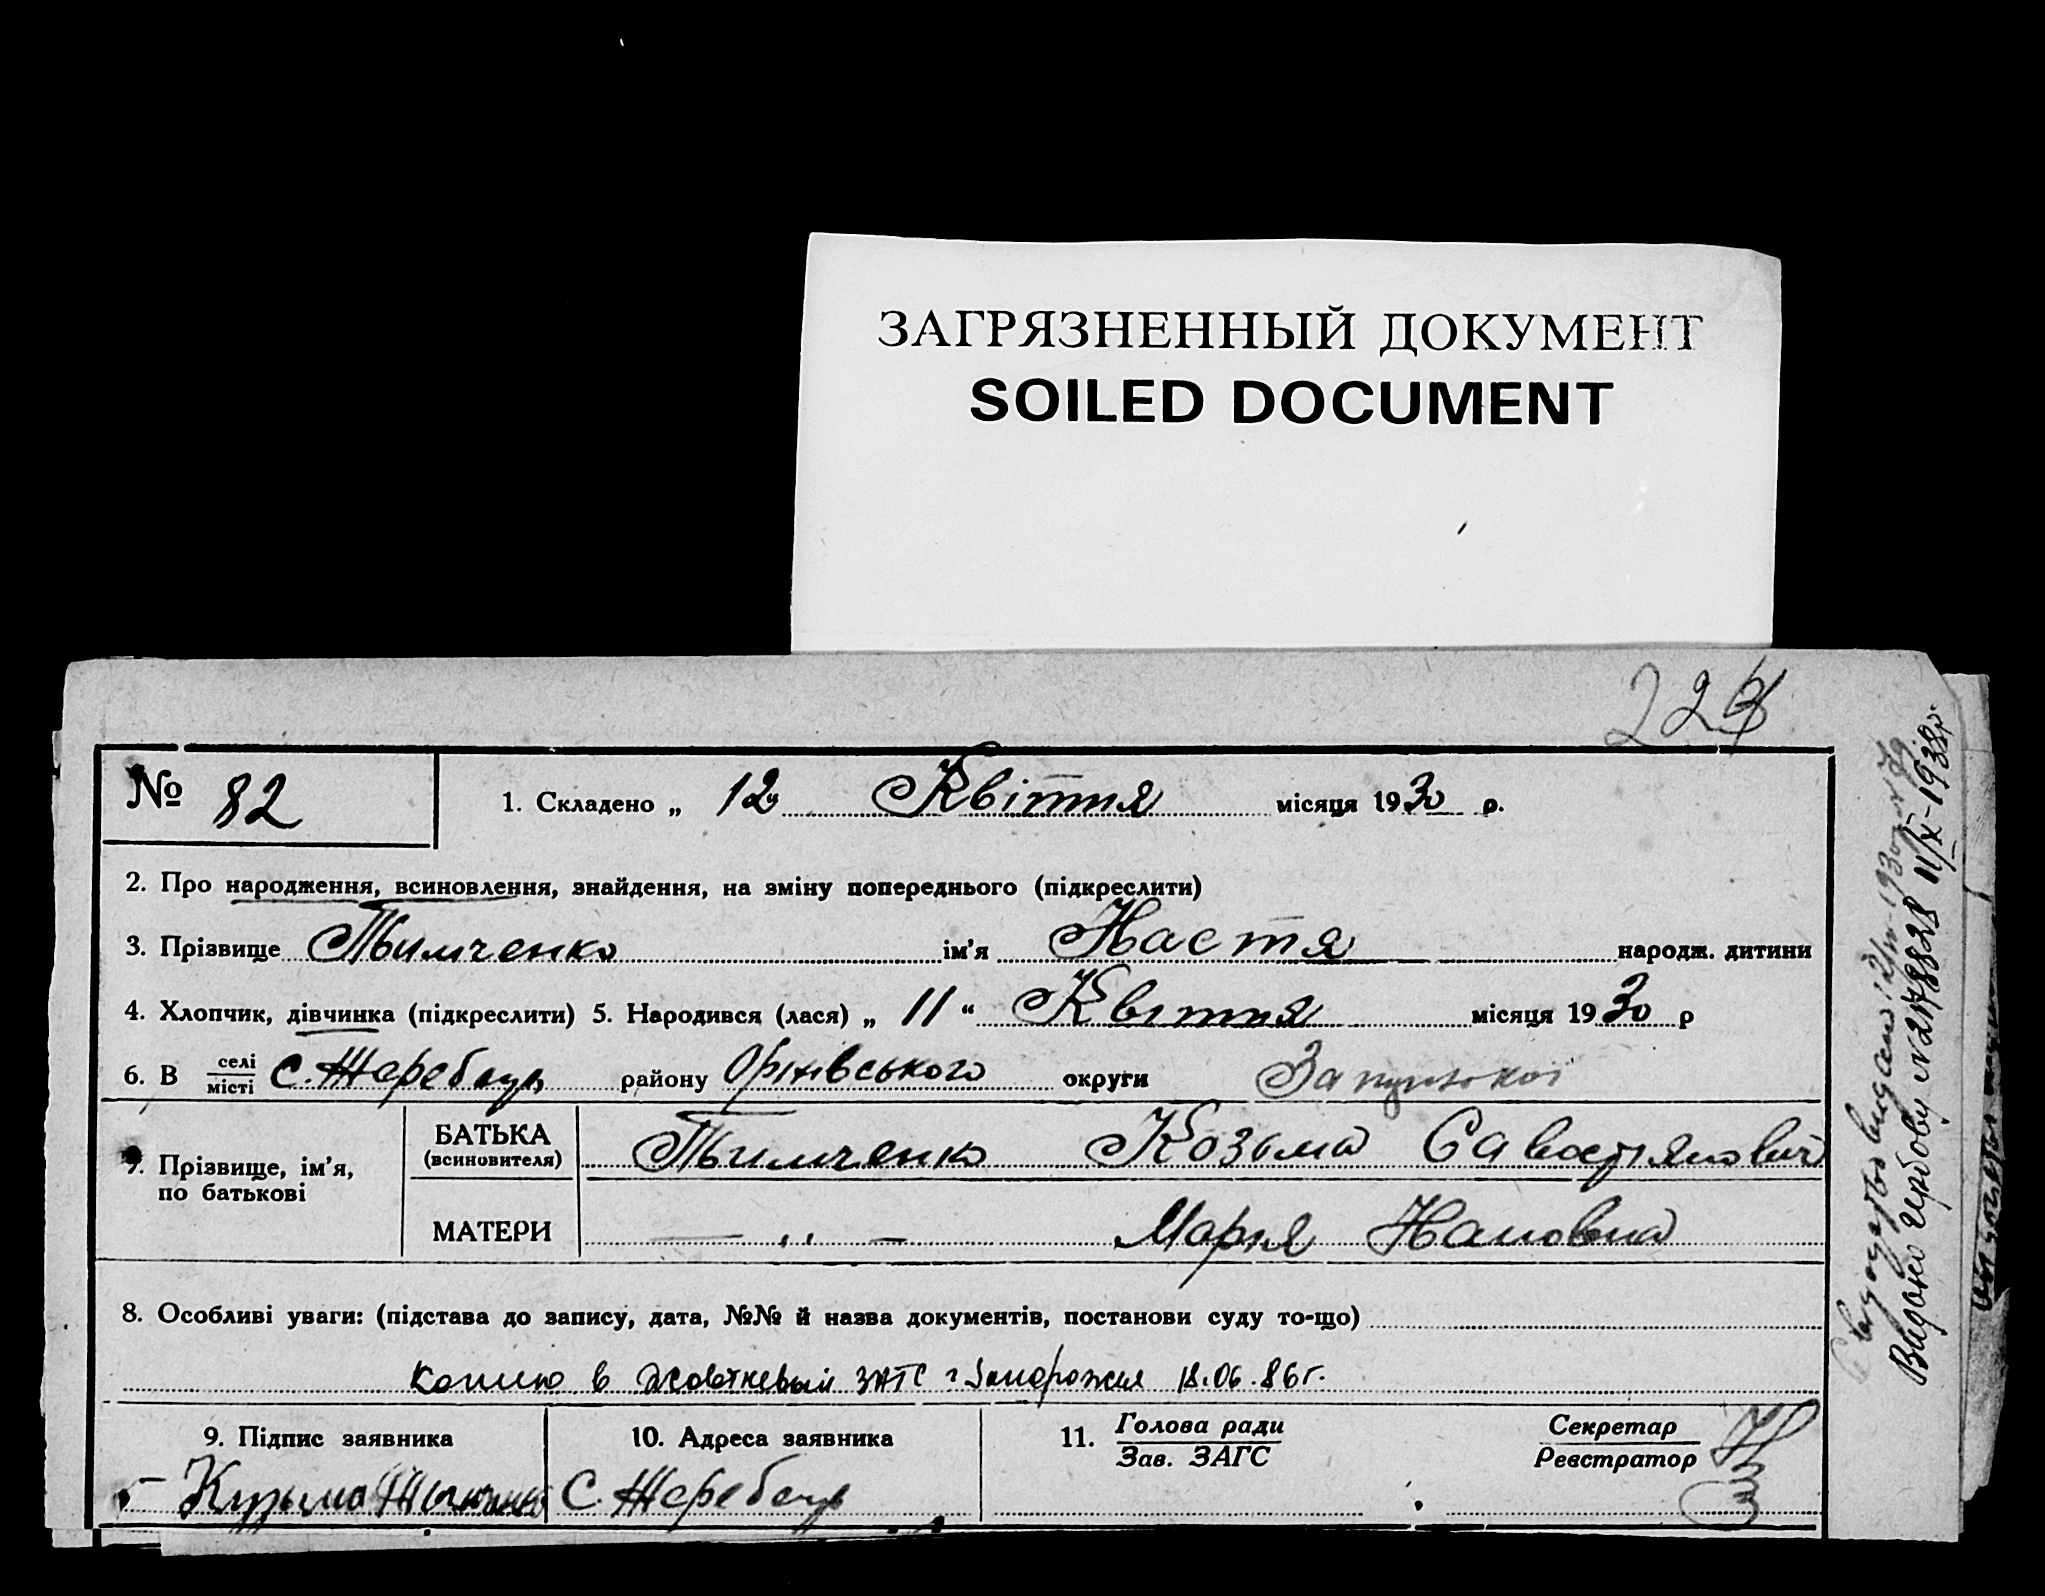 ЗАГРЯЗНЕННЫЙ ДОКУМЕНТ
SOILED DOCUMENT
№ 82
1. Складено „ 12 Квітня місяця 1930 р.
2. Про народження, всиновлення, знайдення, на зміну попереднього (підкреслити)
3. Прізвище Тимченко ім'я Настя народж. дитини
4. Хлопчик, дівчинка (підкреслити) 5. Народився (лася) „ 11 “ Квітня місяця 1930 р
6. В селі/місті С. Жеребець району Оріхівського округи
7. Прізвище, ім'я, по батькові
БАТЬКА (всиновителя) Тимченко Козьма
МАТЕРИ — „ — Марія
8. Особливі уваги: (підстава до запису, дата, №№ й назва документів, постанови суду то-що)
копию в Жовтневый ЗАГС г Запорожья 18.06.86г.
9. Підпис заявника
Кузьма
10. Адреса заявника
С. Жеребець
11. Голова ради
Зав. ЗАГС
Секретар
Реєстратор
Видано
11/X-1938р